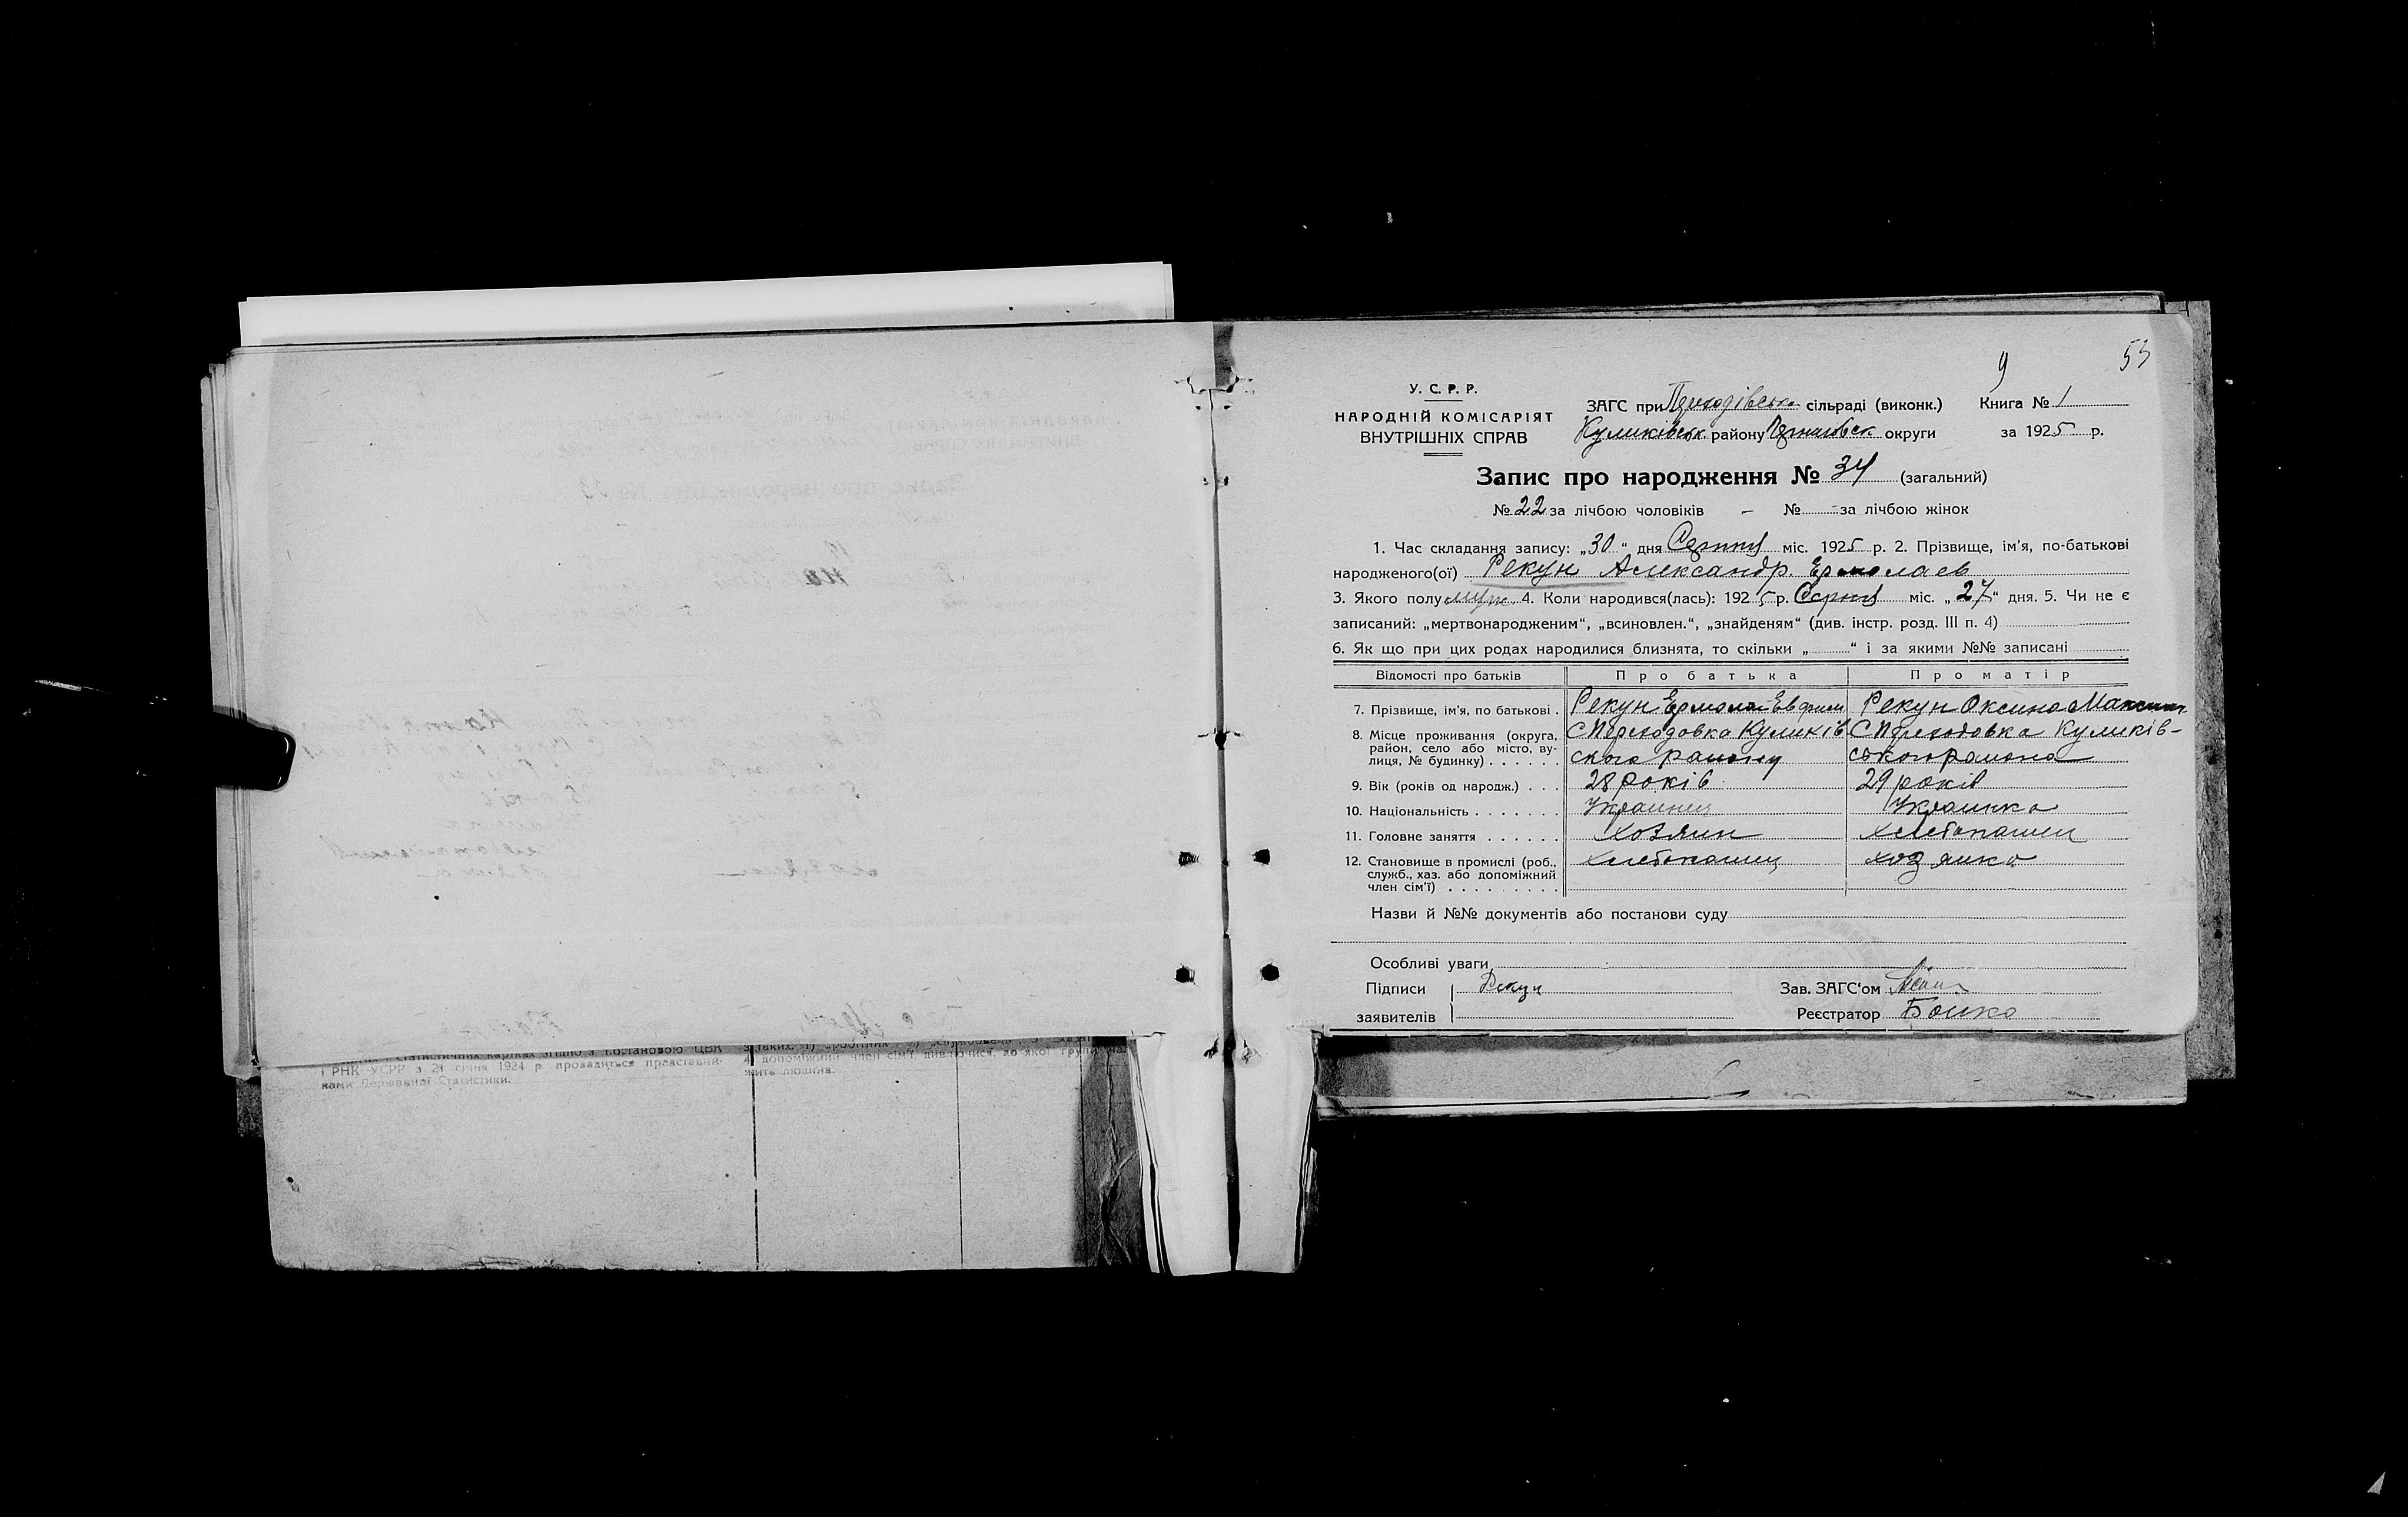 9 53
У. С. Р. Р.
НАРОДНІЙ КОМІСАРІЯТ
ВНУТРІШНІХ СПРАВ
ЗАГС при сільраді (виконк.)
Куликівськ. району округи
Книга № 1
за 1925 р.
Запис про народження № 34 (загальний)
№ 22 за лічбою чоловіків – № - за лічбою жінок
1. Час складання запису: „30“ дня Серпня міс. 1925 р. 2. Прізвище, ім’я, по-батькові
народженого(ої) Рекун Александр Ермолаев
3. Якого полу муж. 4. Коли народився(лась): 1925 р. Серпня міс. „27“ дня. 5. Чи не є
записаний: „мертвонародженим“, „всиновлен.“, „знайденям“ (див. інстр. розд. III п. 4)
6. Як що при цих родах народилися близнята, то скільки „ “ і за якими №№ записані
Відомості про батьків Про батька Про матір
7. Прізвище, ім’я, по батькові . Рекун Ермолай Евфим Рекун Оксина Максим
8. Місце проживання (округа, С Переходовка Куликів С Переходовка Куликів-
район, село або місто, ву-
лиця, № будинку) . . . . . . ского району ського района
9. Вік (років од народж.) . . . 28 років 29 років
10. Національність . . . . . . . Украинец Украинка
11. Головне заняття . . . . . . Хозяин хлебопашец
12. Становище в промислі (роб., хлебопашец хозяика
служб., хаз. або допоміжний
член сім’ї) . . . . . . . . .
Назви й №№ документів або постанови суду
Особливі уваги
Підписи Рекун Зав. ЗАГС‘ом
заявителів Реєстратор Бойко
статистичних картках згідно з постановою ЦВК
і РНК УСРР з 21 січня 1924 р. провадиться представни-
ками Державної Статистики.
4 допоміжний член сім’ї дивлючися, до якої групи на-
жить людина.